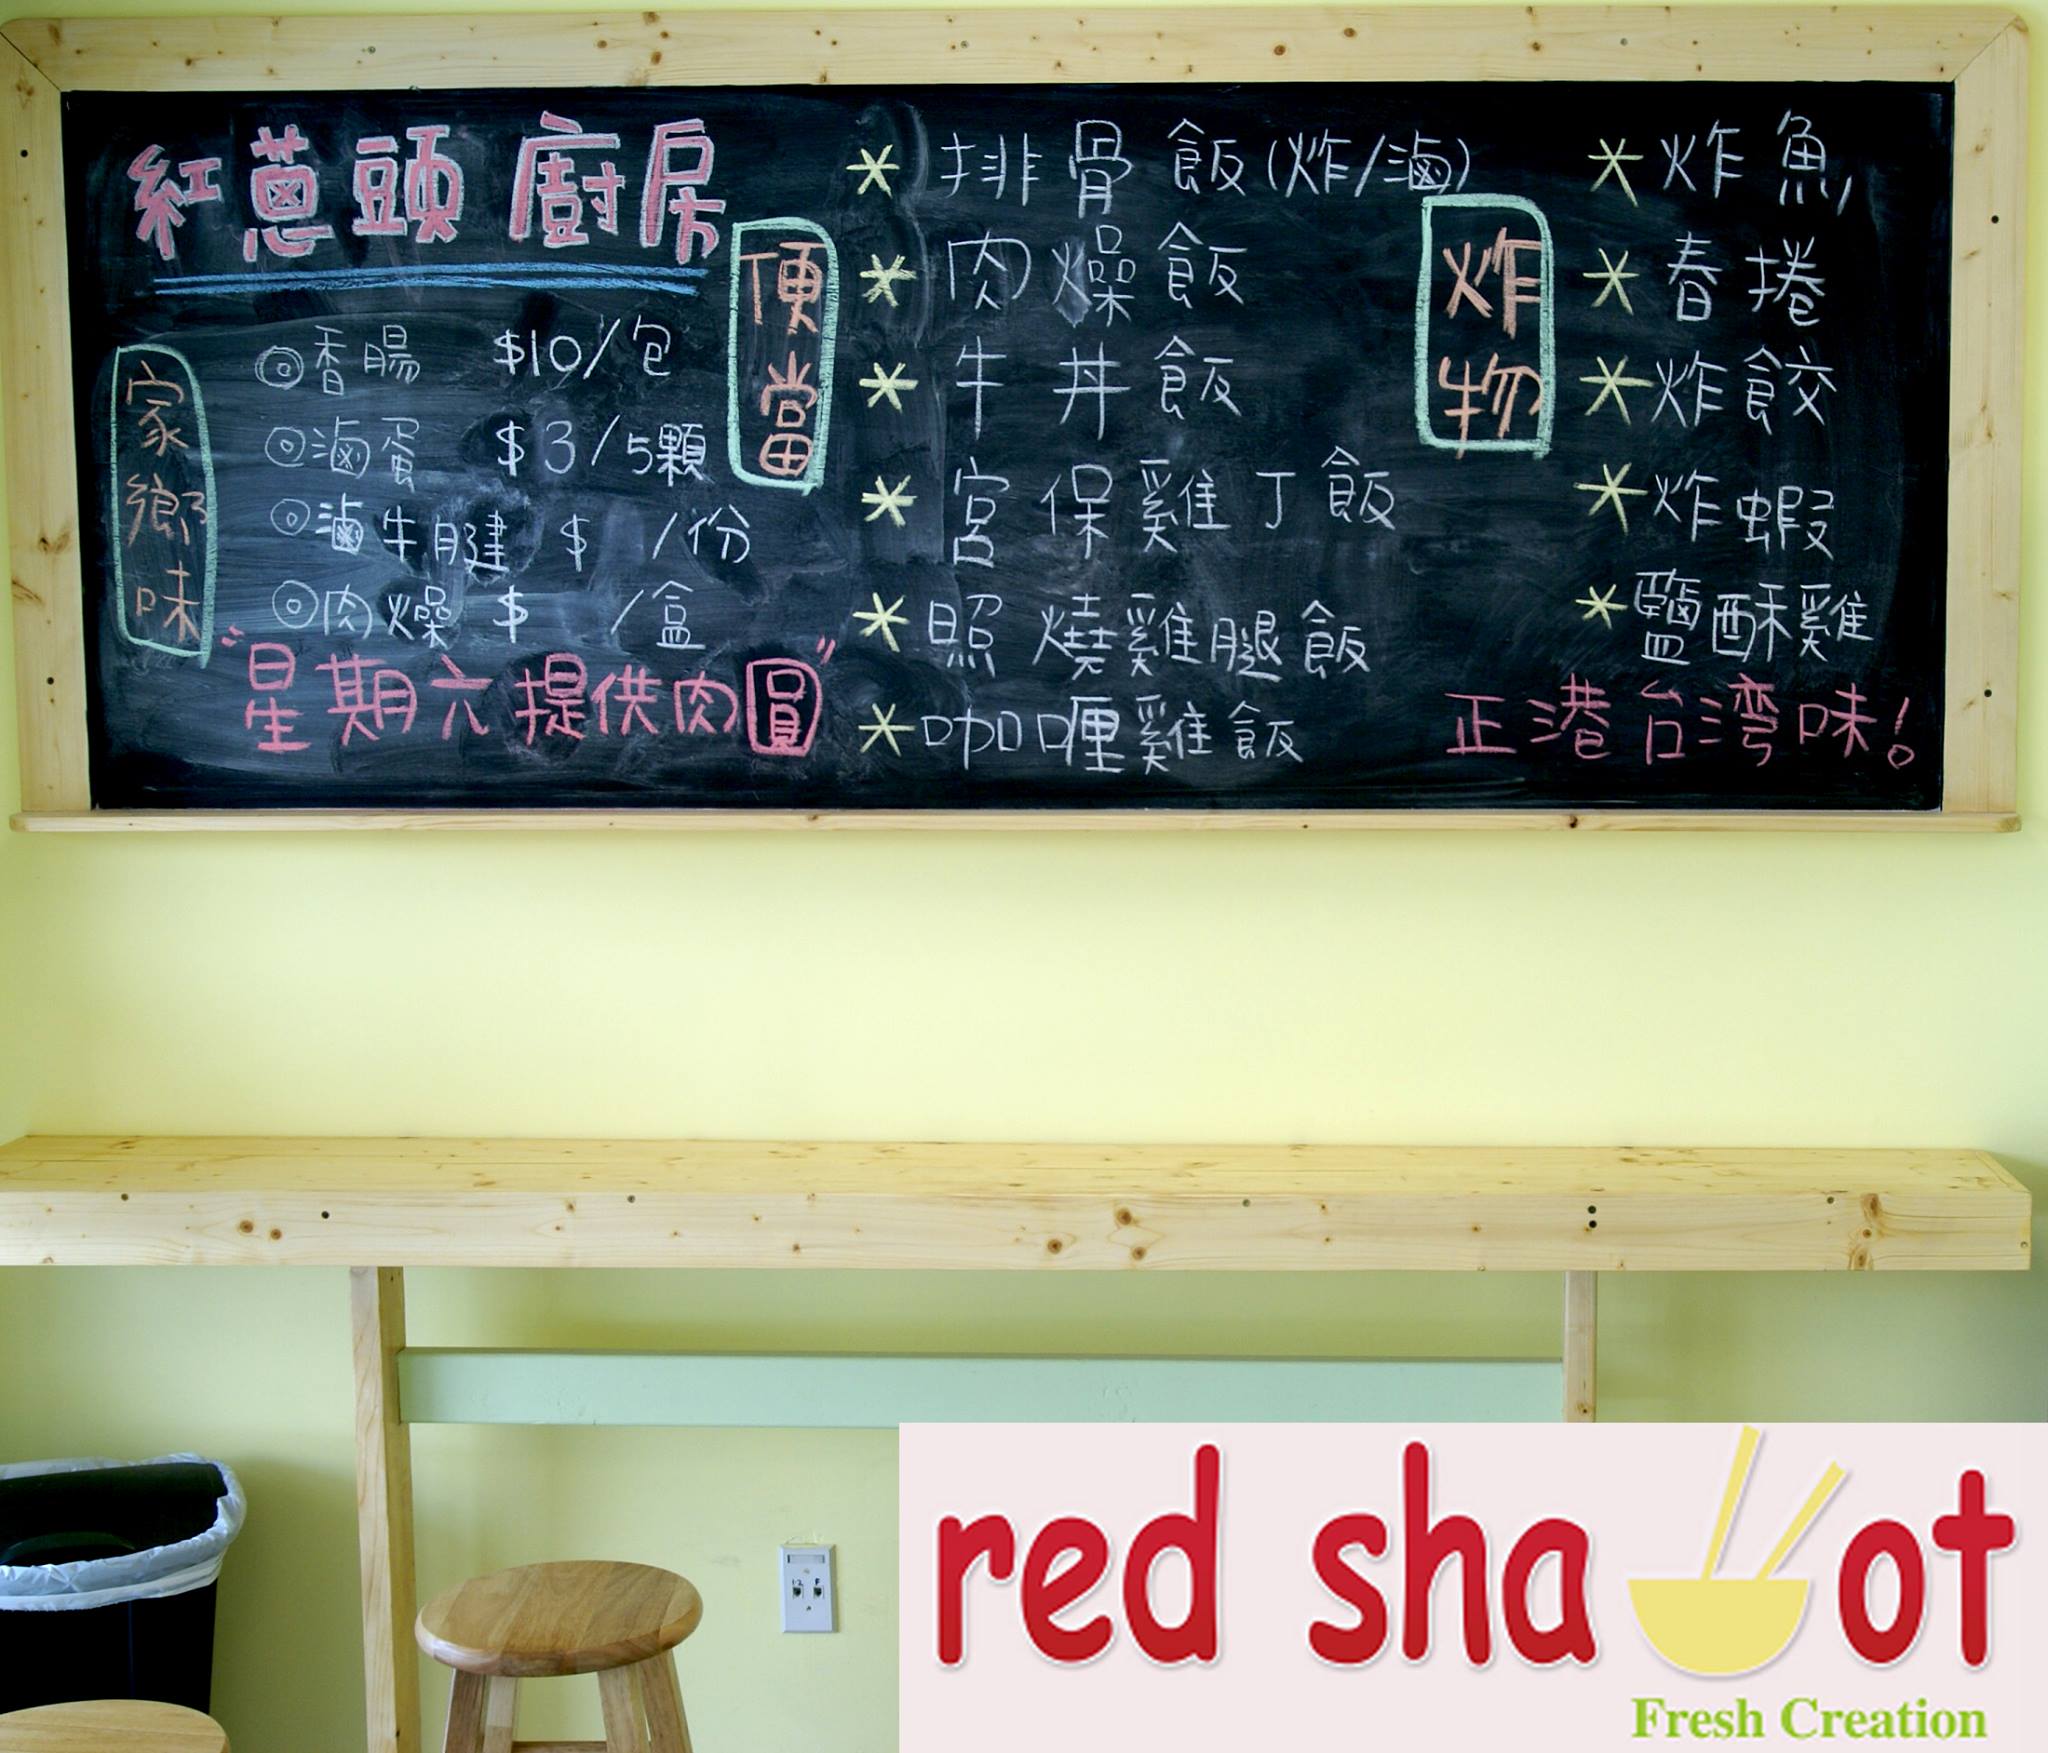 紅蔥頭廚房
家鄉味
◎香腸 $10/包
◎滷蛋 $3/5顆
◎滷牛腱 $ /份
◎肉燥 $ /盒
"星期六提供肉圓"
便當
* 排骨飯(炸/滷)
* 肉燥飯
* 牛丼飯
* 宮保雞丁飯
* 照燒雞腿飯
* 咖哩雞飯
炸物
* 炸魚
* 春捲
* 炸餃
* 炸蝦
* 鹽酥雞
正港台湾味!
red sha ot
Fresh Creation